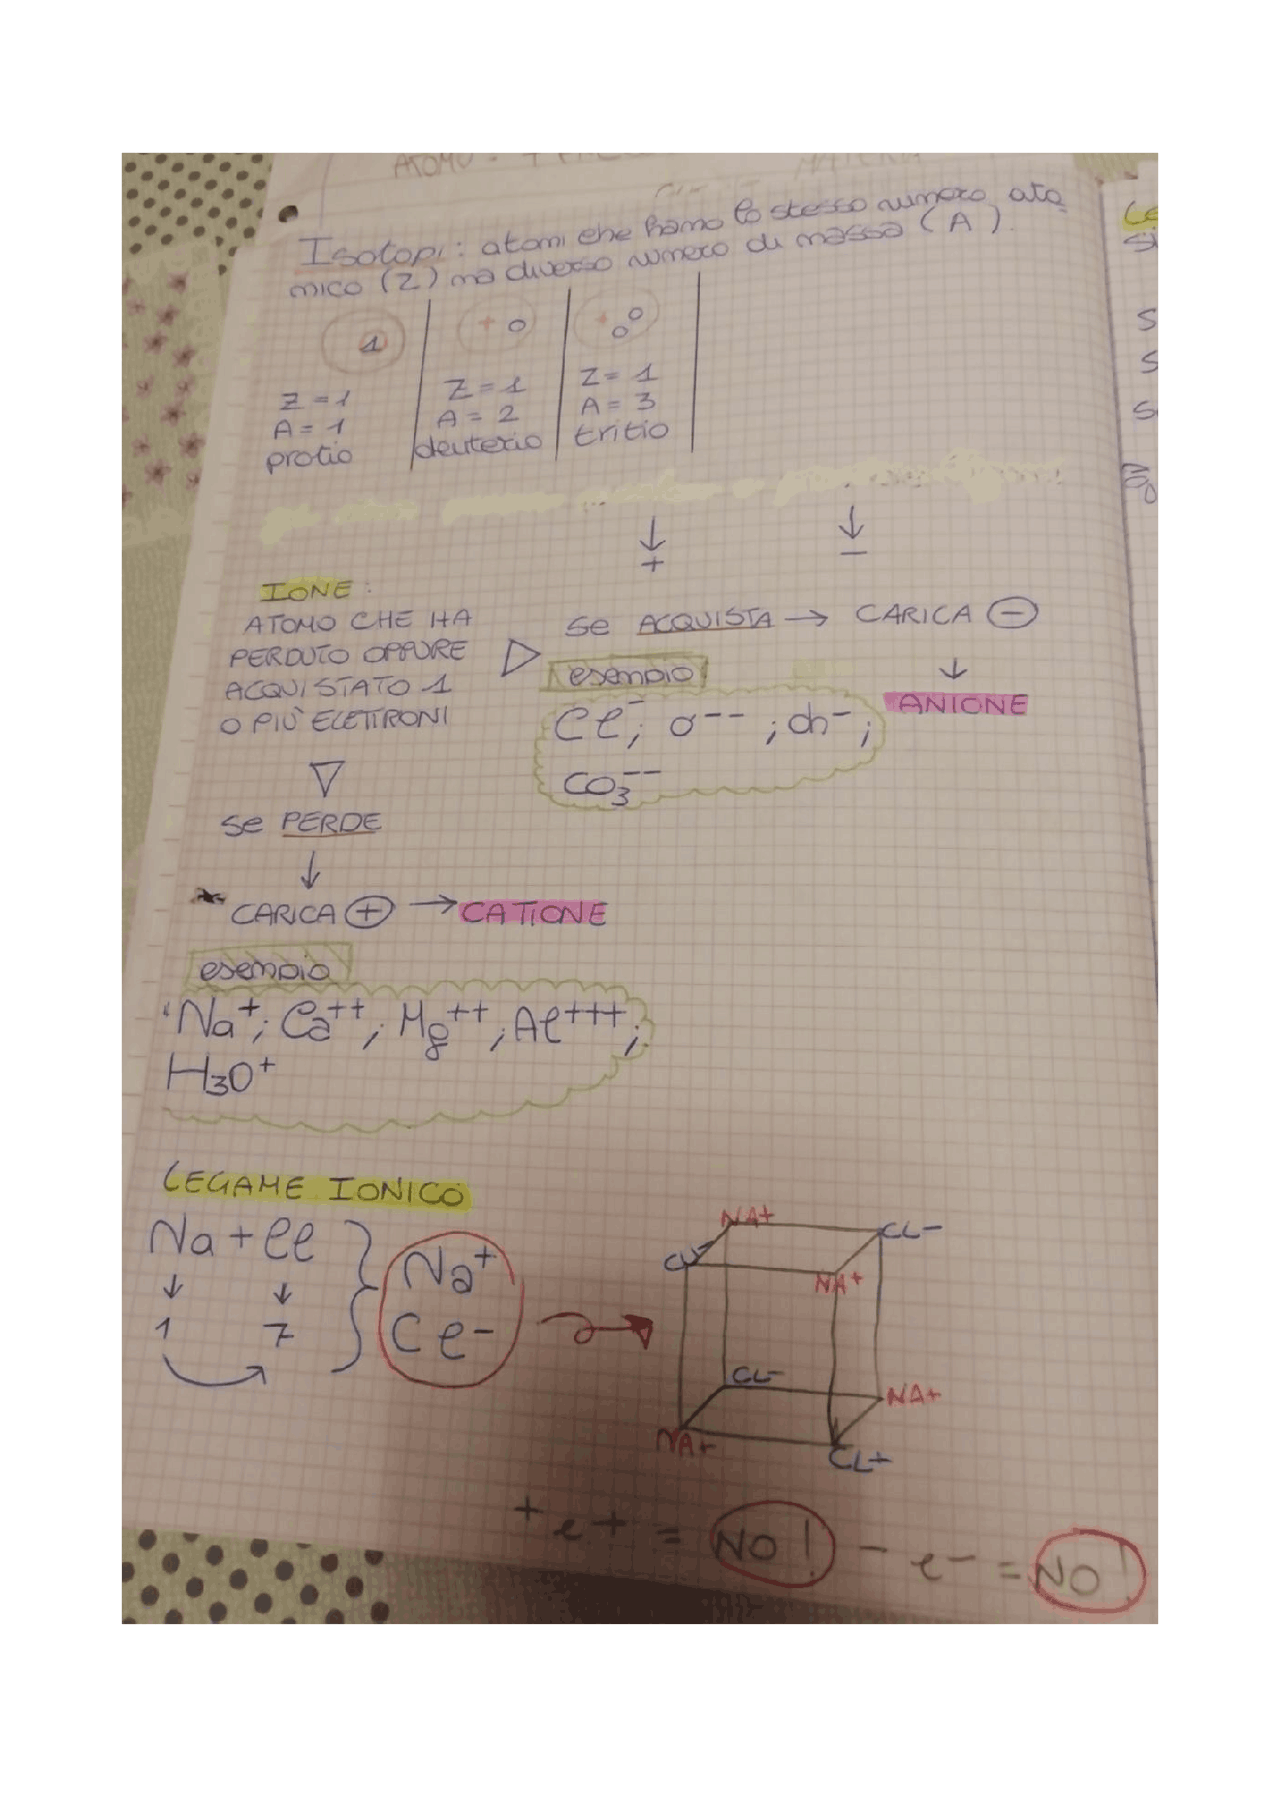 Isotopi: atomi che hanno lo stesso numero ato
mico (Z) ma diverso numero di massa (A).
1
+ o
+ o o
Z=1
A=1
protio
Z=1
A=2
deuterio
Z=1
A=3
tritio
↓ ↓
+ −
IONE:
ATOMO CHE HA
PERDUTO OPPURE
ACQUISTATO 1
O PIÙ ELETTRONI
se ACQUISTA → CARICA ⊖
↓
ANIONE
esempio
Cl⁻; O⁻⁻; oh⁻;
CO₃⁻⁻
se PERDE
↓
CARICA ⊕ → CATIONE
esempio
Na⁺; Ca⁺⁺; Mg⁺⁺; Al⁺⁺⁺;
H₃O⁺
LEGAME IONICO
Na + Cl
↓ ↓
1 7
Na⁺
Cl⁻
NA+ CL−
CL− NA+
CL− NA+
NA+ CL+
+ e + = NO! − e − = NO!